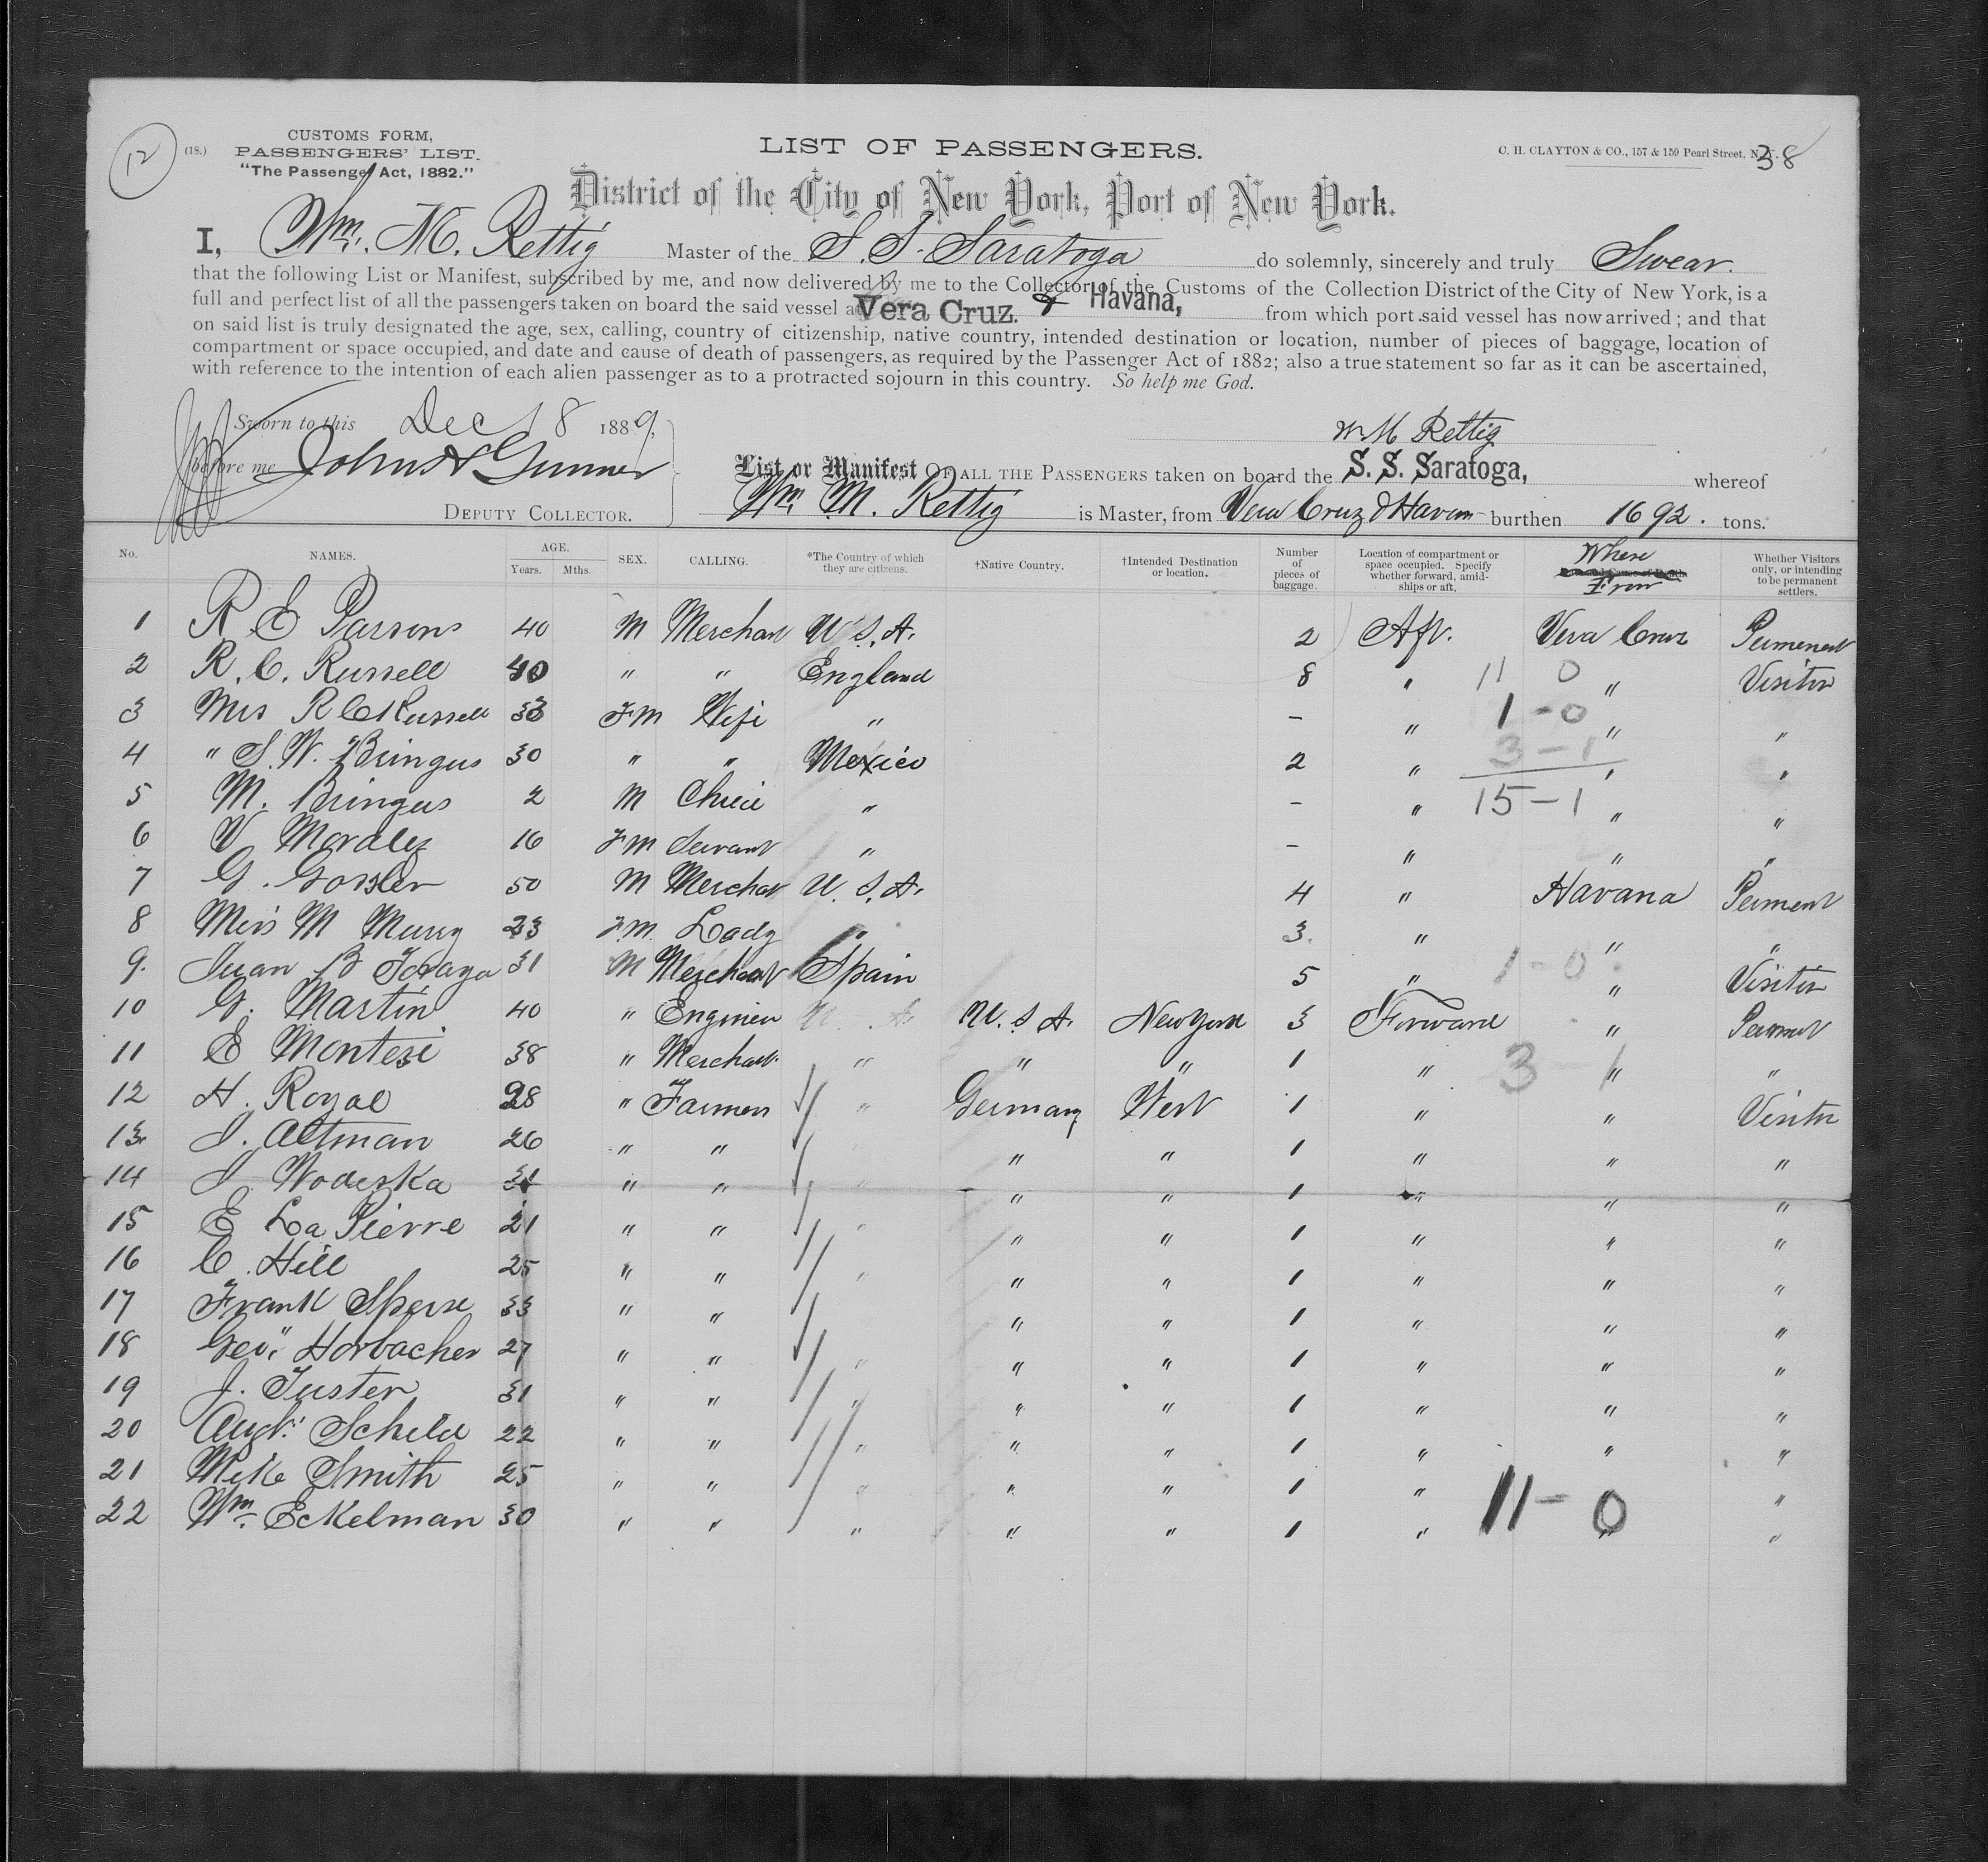 12
(18.)
CUSTOMS FORM,
PASSENGERS' LIST.
"The Passenger Act, 1882."
LIST OF PASSENGERS.
C. H. CLAYTON & CO., 157 & 159 Pearl Street, N. Y.
38
District of the City of New York, Port of New York.
I, Wm. M. Rettig Master of the S. S. Saratoga do solemnly, sincerely and truly Swear.
that the following List or Manifest, subscribed by me, and now delivered by me to the Collector of the Customs of the Collection District of the City of New York, is a
full and perfect list of all the passengers taken on board the said vessel at Vera Cruz. & Havana, from which port said vessel has now arrived; and that
on said list is truly designated the age, sex, calling, country of citizenship, native country, intended destination or location, number of pieces of baggage, location of
compartment or space occupied, and date and cause of death of passengers, as required by the Passenger Act of 1882; also a true statement so far as it can be ascertained,
with reference to the intention of each alien passenger as to a protracted sojourn in this country. So help me God.
Sworn to this Dec 18 1889,
Wm M Rettig
before me John A Gunner
DEPUTY COLLECTOR.
List or Manifest OF ALL THE PASSENGERS taken on board the S. S. Saratoga, whereof
Wm. M. Rettig is Master, from Vera Cruz & Havana burthen 1692. tons.
No. NAMES. AGE. Years. Mths. SEX. CALLING. *The Country of which they are citizens. †Native Country. †Intended Destination or location. Number of pieces of baggage. Location of compartment or space occupied. Specify whether forward, amidships or aft. Where From Whether Visitors only, or intending to be permanent settlers.
1 R E Parsons 40 M Merchant U.S.A. 2 Aft. Vera Cruz Permenent
2 R. C. Russell 40 " " England 8 " 11 0 " Visitor
3 Mrs R C Russell 33 Fm Wife " - " 1-0 " "
4 " S. W. Bringus 30 " " Mexico 2 " 3-1 " "
5 M. Bringus 2 M Child " - " 15-1 " "
6 V Morales 16 Fm Servant " - " " "
7 G. Gossler 50 M Merchat U.S.A. 4 " Havana Perment
8 Miss M Murry 23 Fm. Lady " 3. " " "
9. Juan B 31 M Merchant Spain 5 " 1-0 " Visitor
10 G. Martin 40 " Engineer U.S.A. U.S.A. New York 3 Forward " Permnt
11 E Montesi 38 " Merchant " " " 1 " 3-1 " "
12 H. Royal 28 " Farmer " Germany West 1 " " Visitor
13 J. Altman 26 " " " " " 1 " " "
14 J Wodeska " " " " " 1 " " "
15 E La Pierre 21 " " " " " 1 " " "
16 C. Hill 25 " " " " " 1 " " "
17 Frank 33 " " " " 1 " " "
18 Geo. Horbacher 27 " " " " " 1 " " "
19 J. Fuster 31 " " " " " 1 " " "
20 Augt. Schild 22 " " " " " 1 " " "
21 Mike Smith 25 " " " " " 1 " "
22 Wm. Eckelman 30 " " " " " 1 " 11-0 " "